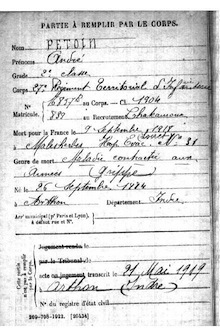 PARTIE À REMPLIR PAR LE CORPS.
Nom PETOIN
Prénoms André
Grade 2e classe
Corps 27e Régiment Territorial d'Infanterie
N° 16857 au Corps. — Cl. 1904
Matricule. 889 au Recrutement Châteauroux
Mort pour la France le 9 Septembre 1918
Malesherbes Hop. Evac. N° 31
Genre de mort Maladie contractée aux
Armées Grippe
Né le 26 Septembre 1884
Arthon Département Indre
Arr' municipal (p' Paris et Lyon),
à défaut rue et N°.
Jugement rendu le
par le Tribunal de
acte ou jugement transcrit le 21 Mai 1919
Arthon (Indre)
N° du registre d'état civil